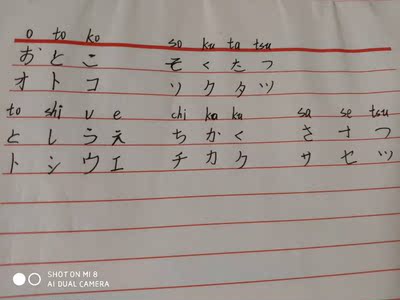 o to ko so ku ta tsu
お と こ そ く た つ
オ ト コ ソ ク タ ツ
to shi u e chi ka ku sa se tsu
と し う え ち か く さ せ つ
ト シ ウ エ チ カ ク サ セ ツ
SHOT ON MI 8
AI DUAL CAMERA